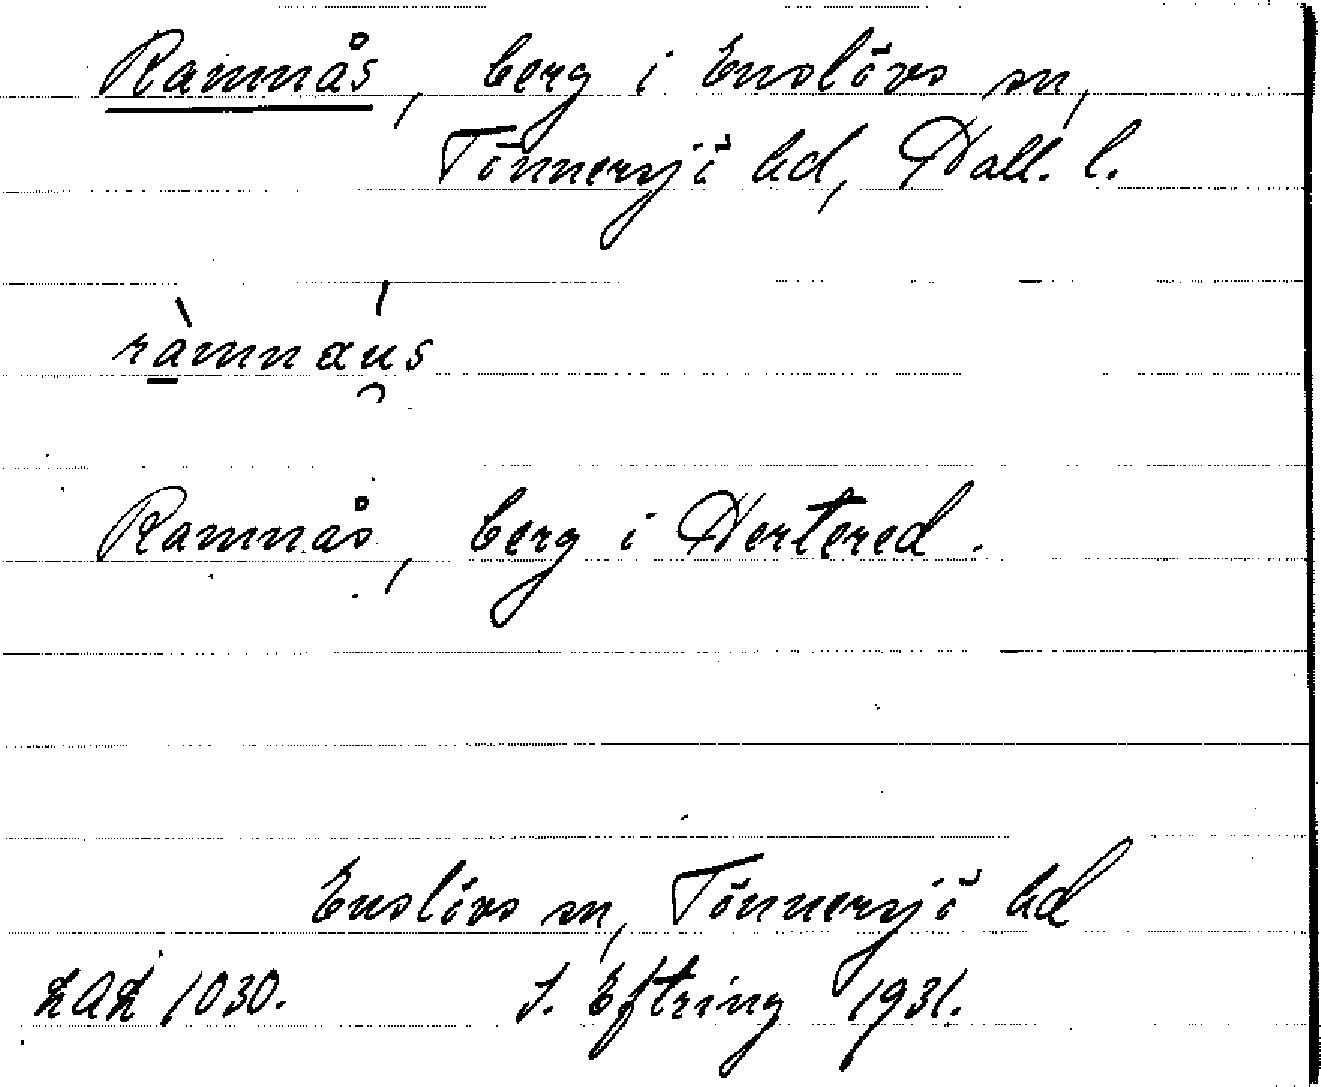 Ramnås, berg i Enslövs sn,
Tönnersjö hd, Hall. l.
ràmnáu̯s
Ramnås, berg i Hertered.
Enslövs sn, Tönnersjö hd
LAL 1030. J. Eftring 1931.